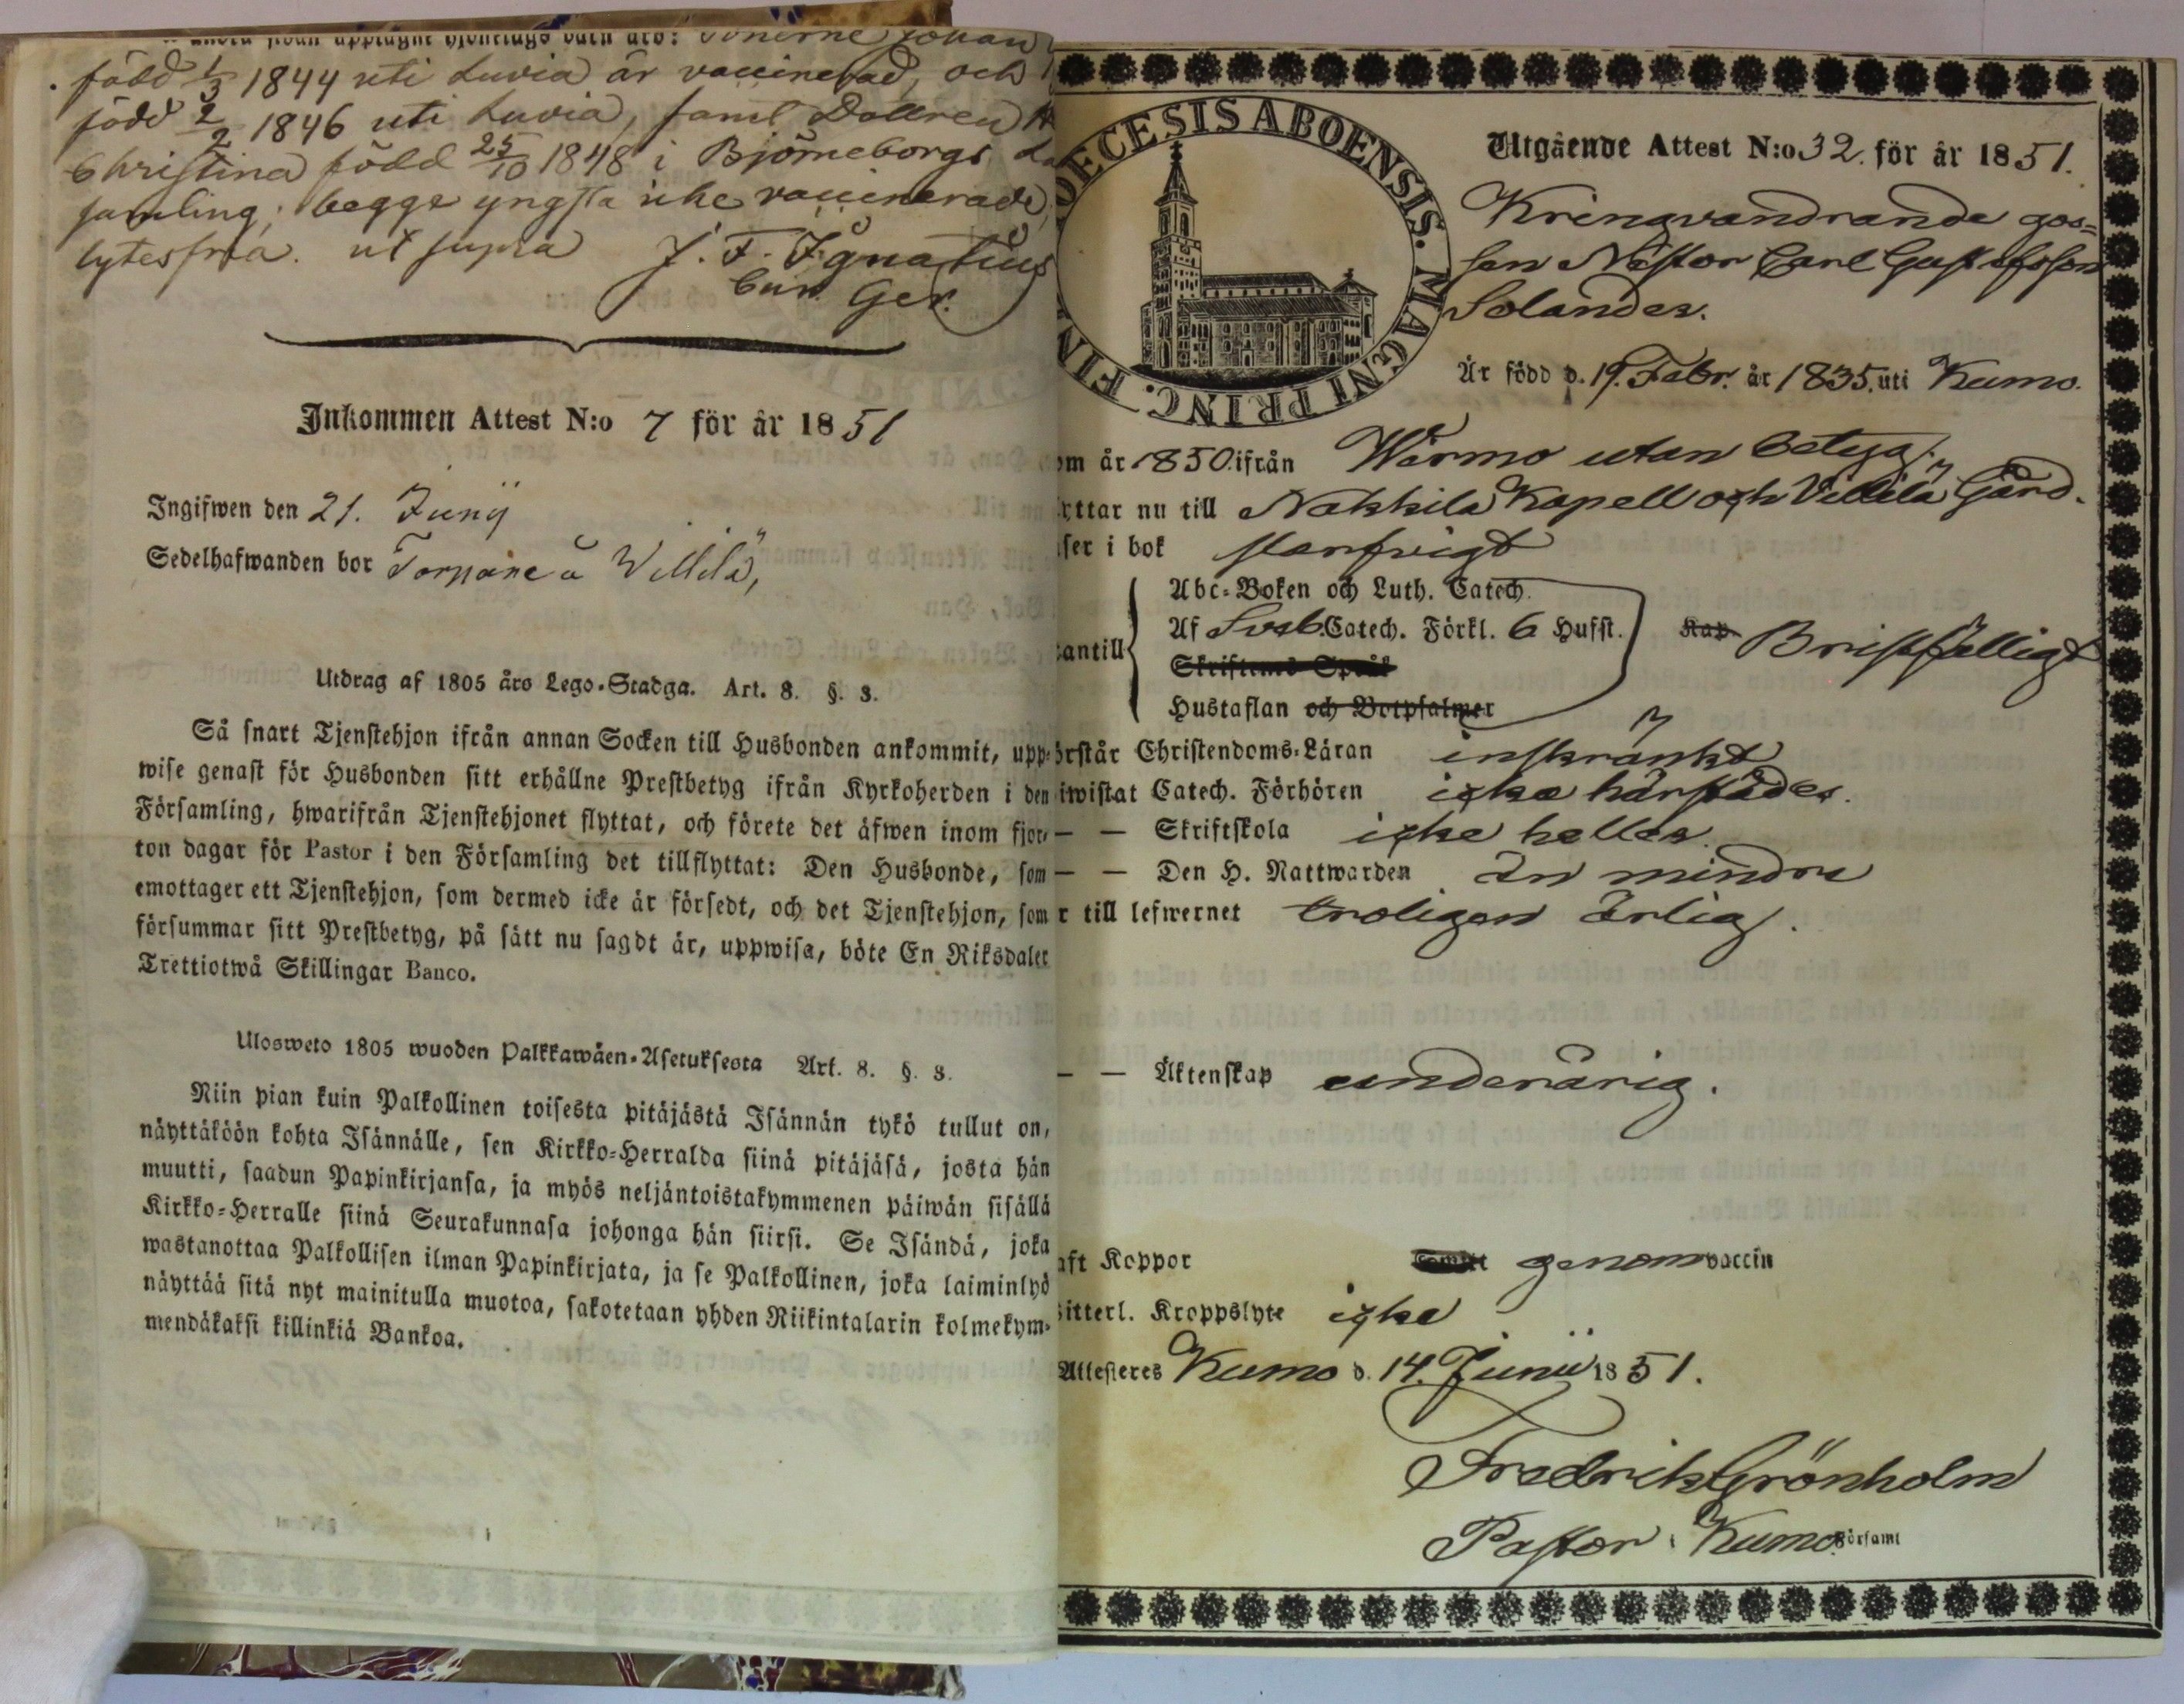 född 1/3 1844 uti Luvia är vaccinerad, och
född 2/2 1846 uti Luvia, samt Dottren
Christina född 25/10 1848 i Björneborgs
samling; begge yngsta icke vaccinerade,
lytesfria. ut supra J. F. Ignatius
Inkommen Attest N:o 7 för år 1851
Ingifwen den 21. Junij
Sedelhafwanden bor Torpare å Willilä,
Utdrag af 1805 års Lego-Stadga. Art. 8. §. 3.
Så snart Tjenstehjon ifrån annan Socken till Husbonden ankommit, upp-
wise genast för Husbonden sitt erhållne Prestbetyg ifrån Kyrkoherden i den
Församling, hwarifrån Tjenstehjonet flyttat, och förete det äfwen inom fjor-
ton dagar för Pastor i den Församling det tillflyttat: Den Husbonde, som
emottager ett Tjenstehjon, som dermed icke är försedt, och det Tjenstehjon, som
försummar sitt Prestbetyg, på sätt nu sagdt är, uppwisa, böte En Riksdaler
Trettiotwå Skillingar Banco.
Ulosweto 1805 wuoden Palkkawäen-Asetuksesta Art. 8. §. 3.
Niin pian kuin Palkollinen toisesta pitäjästä Isännän tykö tullut on,
näyttäköön kohta Isännälle, sen Kirkko-Herralda siinä pitäjäsä, josta hän
muutti, saadun Papinkirjansa, ja myös neljäntoistakymmenen päiwän sisällä
Kirkko-Herralle siinä Seurakunnasa johonga hän siirsi. Se Isändä, joka
wastanottaa Palkollisen ilman Papinkirjata, ja se Palkollinen, joka laiminlyö
näyttää sitä nyt mainitulla muotoa, sakotetaan yhden Riikintalarin kolmekym-
mendäkaksi killinkiä Bankoa.
DECESIS ABOENSIS. MAGNI PRINC. FIN
Utgående Attest N:o 32. för år 1851.
Kringvandrande gos=
sen Nestor Carl Gustafsson
Solander.
Är född d. 19. Febr. år 1835. uti Kumo.
om år 1850 ifrån Wärmo utan betyg.
yttar nu till Nakkila Kapell och Villilä Gård.
ser i bok stanfrigt
Abc-Boken och Luth. Catech.
Af Sveb. Catech. Förkl. 6 Hufst. Kap Bristfälligt
antill
Skriftens Språk
Hustaflan och Botpsalmer
örstår Christendoms-Läran inskränkt
iwistat Catech. Förhören icke härstädes.
— — Skriftskola icke heller.
— — Den H. Nattwarden än mindre
r till lefwernet troligen ärlig.
— — Äktenskap underårig.
aft Koppor genom vaccin
itterl. Kroppslyte icke
Attesteres Kumo d. 14. Junii 1851.
Fredrik Grönholm
Pastor i Kumo Församl